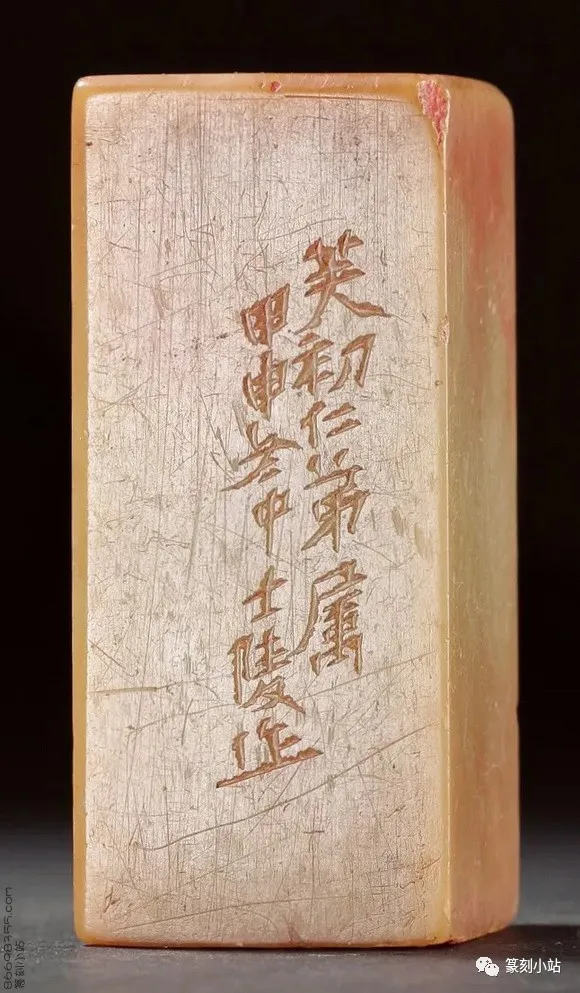 芙初仁弟属
甲申冬中士陵作
86698355.com
篆刻小站
篆刻小站